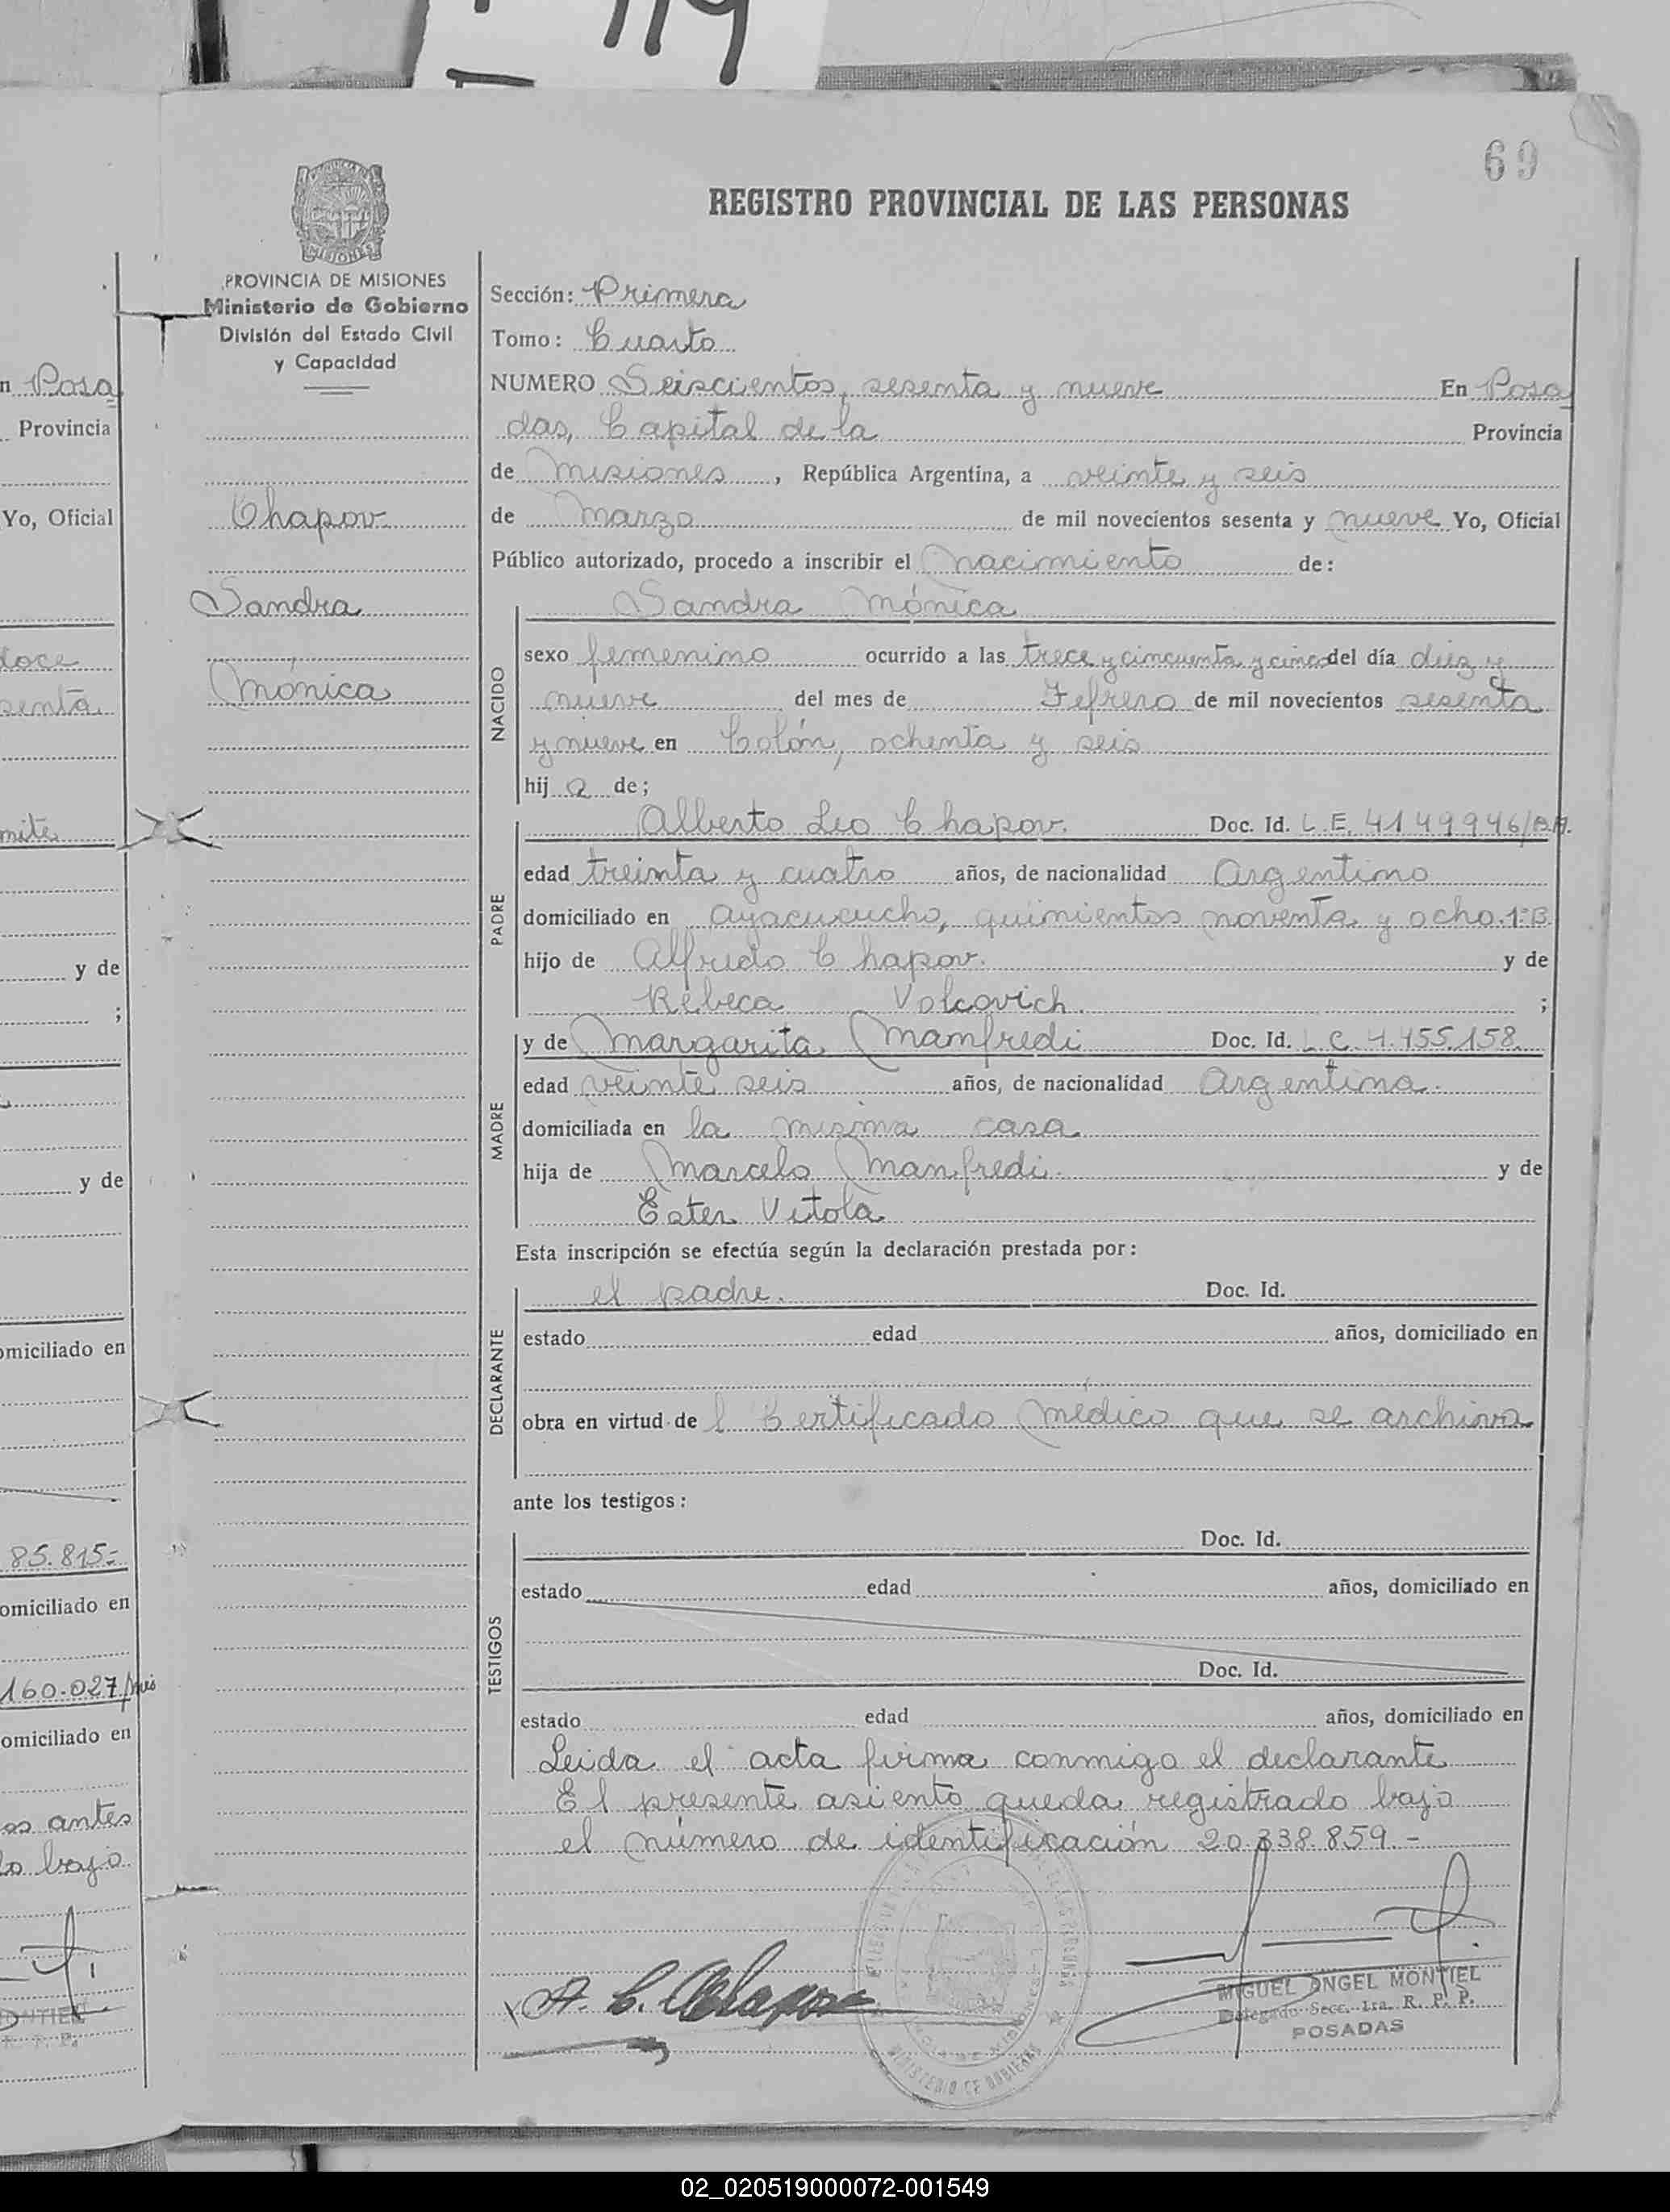 69
REGISTRO PROVINCIAL DE LAS PERSONAS
PROVINCIA DE MISIONES
Ministerio de Gobierno
División del Estado Civil
y Capacidad
Chapov
Sandra
Mónica
Sección: Primera
Tomo: Cuarto
NUMERO Seiscientos, sesenta y nueve En Posa
das, Capital de la Provincia
de Misiones, República Argentina, a veinte y seis
de Marzo de mil novecientos sesenta y nueve Yo, Oficial
Público autorizado, procedo a inscribir el Nacimiento de:
Sandra Mónica
NACIDO
sexo femenino ocurrido a las trece y cincuenta y cinco del día diez y
nueve del mes de Febrero de mil novecientos sesenta
y nueve en Colón, ochenta y seis
hij a de;
PADRE
Alberto Leo Chapov. Doc. Id. L.E. 4149946/B.A.
edad treinta y cuatro años, de nacionalidad Argentino
domiciliado en Ayacucucho, quinientos noventa y ocho. 1º B
hijo de Alfredo Chapov. y de
Rebeca Volcovich. ;
MADRE
y de Margarita Manfredi Doc. Id. L.C. 4.455.158.
edad veinte seis años, de nacionalidad Argentina.
domiciliada en la misma casa
hija de Marcelo Manfredi. y de
Ester Vitola
Esta inscripción se efectúa según la declaración prestada por:
DECLARANTE
el padre. Doc. Id.
estado edad años, domiciliado en
obra en virtud de l Certificado Médico que se archiva
ante los testigos:
TESTIGOS
Doc. Id.
estado edad años, domiciliado en
Doc. Id.
estado edad años, domiciliado en
Leida el acta firma conmigo el declarante
El presente asiento queda registrado bajo
el número de identificación 20.338.859.-
A. L. Chapov
MIGUEL ANGEL MONTIEL
Delegado Secc. 1ra. R. P. P.
POSADAS
MINISTERIO DE GOBIERNO
n Posa
Provincia
Yo, Oficial
doce
senta
y de
;
y de
omiciliado en
85.815=
omiciliado en
160.027/
omiciliado en
os antes
lo bajo
02_020519000072-001549